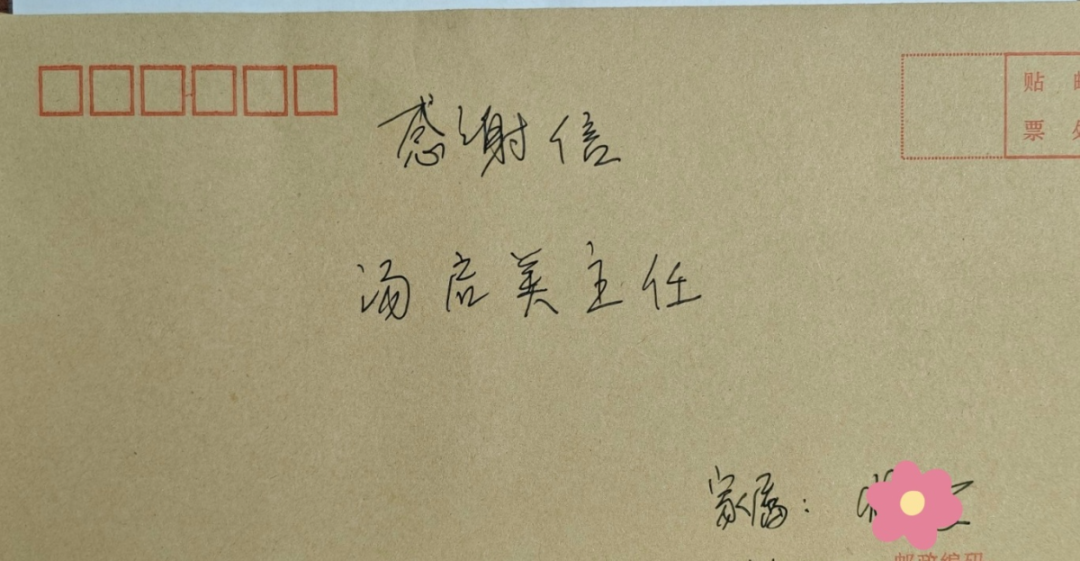 感谢信
贴邮
票处
汤启美主任
家属：
邮政编码